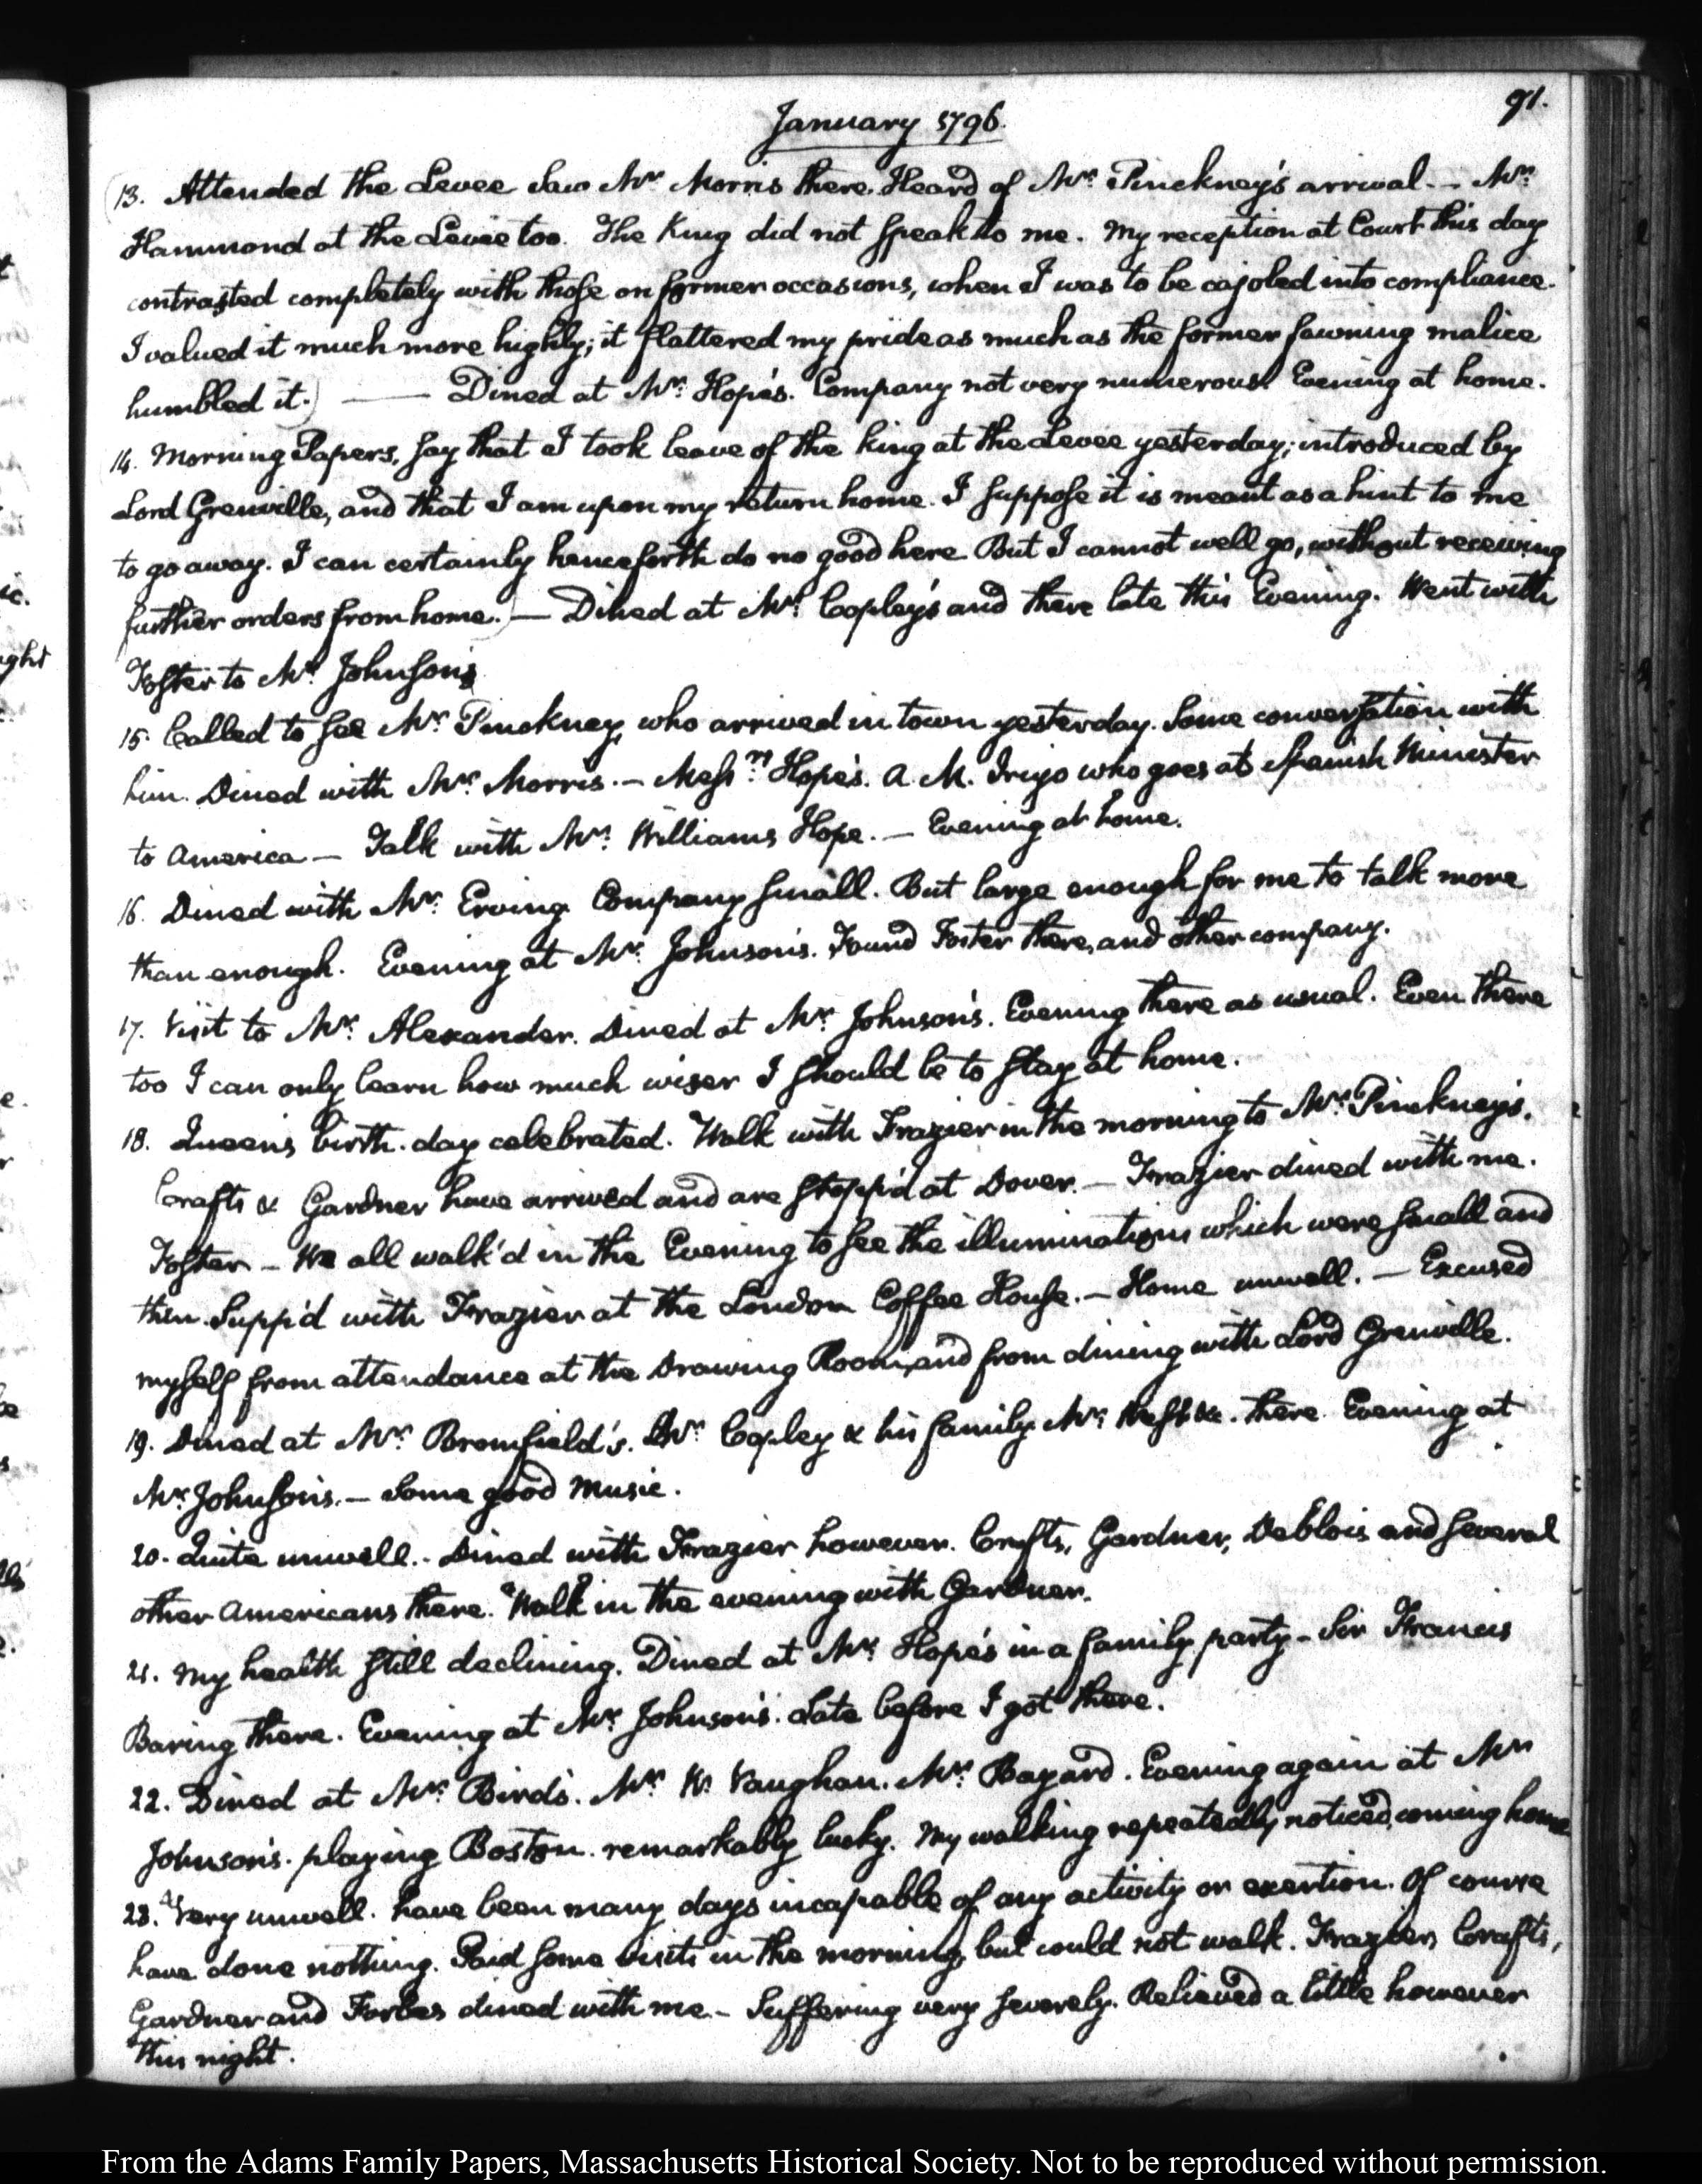 91.
January 1796.
13. Attended the Levee Saw Mr: Morris there. Heard of Mr: Pinckney's arrival.— Mr:
Hammond at the Levee too. The King did not speak to me. My reception at Court this day
contrasted completely with those on former occasions, when I was to be cajoled into compliance.
I valued it much more highly; it flattered my pride as much as the former fawning malice
humbled it.) —— Dined at Mr: Hope's. Company not very numerous. Evening at home.
14. Morning Papers, say that I took leave of the King at the Levee yesterday; introduced by
Lord Grenville, and that I am upon my return home. I suppose it is meant as a hint to me
to go away. I can certainly henceforth do no good here. But I cannot well go, without receiving
further orders from home.) — Dined at Mr: Copley's and there late this Evening. Went with
Foster to Mr: Johnson's
15. Called to see Mr: Pinckney, who arrived in town yesterday. Some conversation with
him. Dined with Mr: Morris.— Messrs Hope's. A M. Irujo who goes as Spanish Minister
to America — Talk with Mr: Williams Hope.— Evening at home.
16. Dined with Mr: Erving. Company small. But large enough for me to talk more
than enough. Evening at Mr: Johnson's. Found Foster there, and other company.
17. Visit to Mr: Alexander. Dined at Mr: Johnson's. Evening there as usual. Even there
too I can only learn how much wiser I should be to stay at home.
18. Queen's birth-day celebrated. Walk with Frazier in the morning to Mr: Pinckney's.
Crafts & Gardner have arrived and are stopp'd at Dover.— Frazier dined with me.
Foster — We all walk'd in the Evening to see the illuminations which were small and
thin. Supp'd with Frazier at the London Coffee House.— Home unwell.— Excused
myself from attendance at the Drawing Room, and from dining with Lord Grenville.
19. Dined at Mr: Bromfield's. Mr: Copley & his family. Mr: West &c. there. Evening at
Mr: Johnson's.— Some good music.
20. Quite unwell.— Dined with Frazier however. Crafts, Gardner, Deblois and several
other Americans there. Walk in the evening with Gardner.
21. My health still declining. Dined at Mr: Hope's in a family party — Sir Francis
Baring there. Evening at Mr: Johnson's. Late before I got there.
22. Dined at Mr: Bird's. Mr: W. Vaughan. Mr: Bayard. Evening again at Mr:
Johnson's. playing Boston. remarkably lucky. My walking repeatedly noticed, coming home
23. Very unwell. have been many days incapable of any activity or exertion. Of course
have done nothing. Paid some visits in the morning, but could not walk. Frazier, Crafts,
Gardner and Forbes dined with me — Suffering very severely. Relieved a little however
this night.
From the Adams Family Papers, Massachusetts Historical Society. Not to be reproduced without permission.